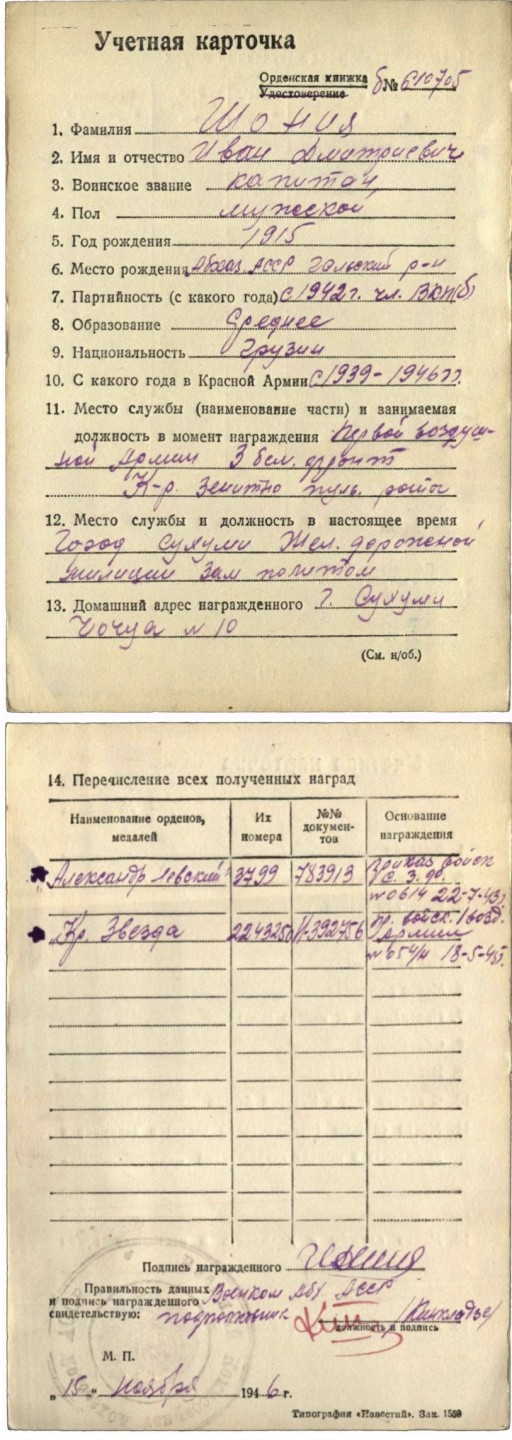 Учетная карточка
Орденская книжка
Удостоверение б№ 610705
1. Фамилия Шония
2. Имя и отчество Иван Дмитриевич
3. Воинское звание капитан
4. Пол мужской
5. Год рождения 1915
6. Место рождения Абхаз. АССР Гальский р-н
7. Партийность (с какого года) с 1942 г. чл. ВКП(б)
8. Образование Среднее
9. Национальность Грузин
10. С какого года в Красной Армии с 1939-1946 гг.
11. Место службы (наименование части) и занимаемая
должность в момент награждения Первой воздуш-
ной Армии 3 бел. фронт
К-р. Зенитно пуль. роты
12. Место службы и должность в настоящее время
Город Сухуми Жел. дорожной
милиции Зам политом
13. Домашний адрес награжденного г. Сухуми
Чочуа № 10
(См. н/об.)
14. Перечисление всех полученных наград
Наименование орденов, медалей Их номера №№ документов Основание награждения
"Александр Невский" 3799 783913 Приказ войск
3.
№ 0614 22-7-43
"Кр. Звезда 2243250 392756 Пр. войск. 1 возд.
Армии
№ 054/н 18-5-45
Подпись награжденного Шония
Правильность данных
и подпись награжденного
свидетельствую: Военком Абх АССР
подполковник
должность и подпись
М. П.
„15" ноября 1946 г.
Типография «Известий». Зак. 1550